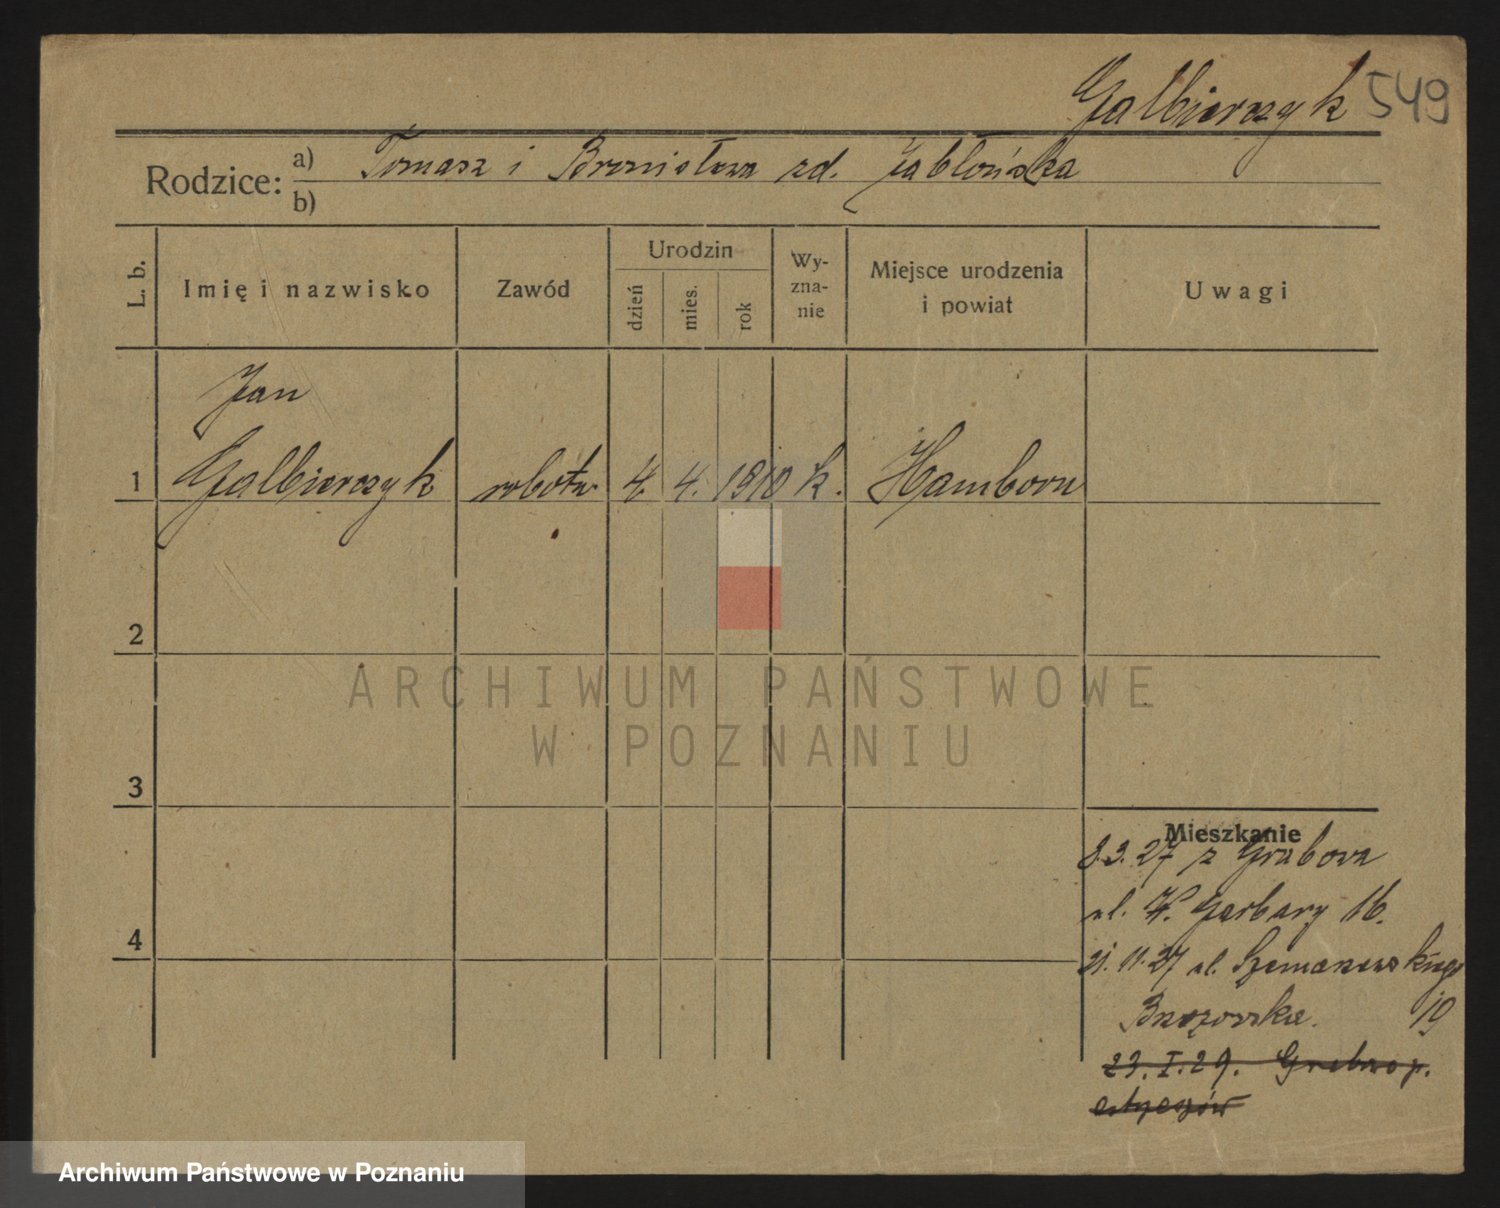 Galbierczyk 549
Rodzice: a) Tomasz i Bronisława zd. Jabłońska
b)
L. b. Imię i nazwisko Zawód Urodzin dzień mies. rok Wyznanie Miejsce urodzenia i powiat Uwagi
Jan
1 Galbierczyk robotn. 4. 4. 1910 k. Hamborn
2
ARCHIWUM PAŃSTWOWE
W POZNANIU
3
Mieszkanie
8.3.27 z Grabowa
ul. W. Garbary 16.
21.11.27 ul. Szamarzewskiego
19
23.I.29. Grabow p.
4
Archiwum Państwowe w Poznaniu